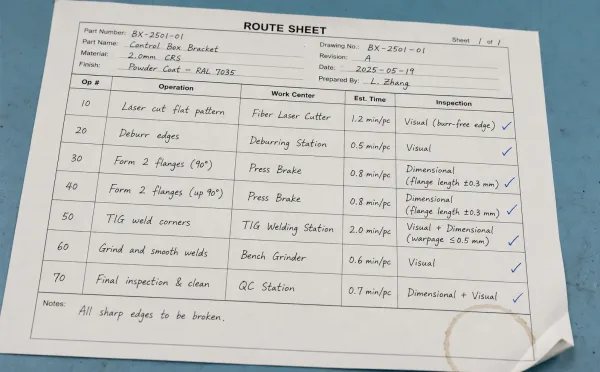 ROUTE SHEET
Sheet 1 of 1
Part Number: BX-2501-01
Part Name: Control Box Bracket
Material: 2.0mm CRS
Finish: Powder Coat – RAL 7035
Drawing No.: BX-2501-01
Revision: A
Date: 2025-05-19
Prepared By: L. Zhang
Op # Operation Work Center Est. Time Inspection
10 Laser cut flat pattern Fiber Laser Cutter 1.2 min/pc Visual (burr-free edge) ✓
20 Deburr edges Deburring Station 0.5 min/pc Visual ✓
30 Form 2 flanges (90°) Press Brake 0.8 min/pc Dimensional
(flange length ±0.3 mm) ✓
40 Form 2 flanges (up 90°) Press Brake 0.8 min/pc Dimensional
(flange length ±0.3 mm) ✓
50 TIG weld corners TIG Welding Station 2.0 min/pc Visual + Dimensional
(warpage ≤0.5 mm) ✓
60 Grind and smooth welds Bench Grinder 0.6 min/pc Visual ✓
70 Final inspection & clean QC Station 0.7 min/pc Dimensional + Visual ✓
Notes:
All sharp edges to be broken.